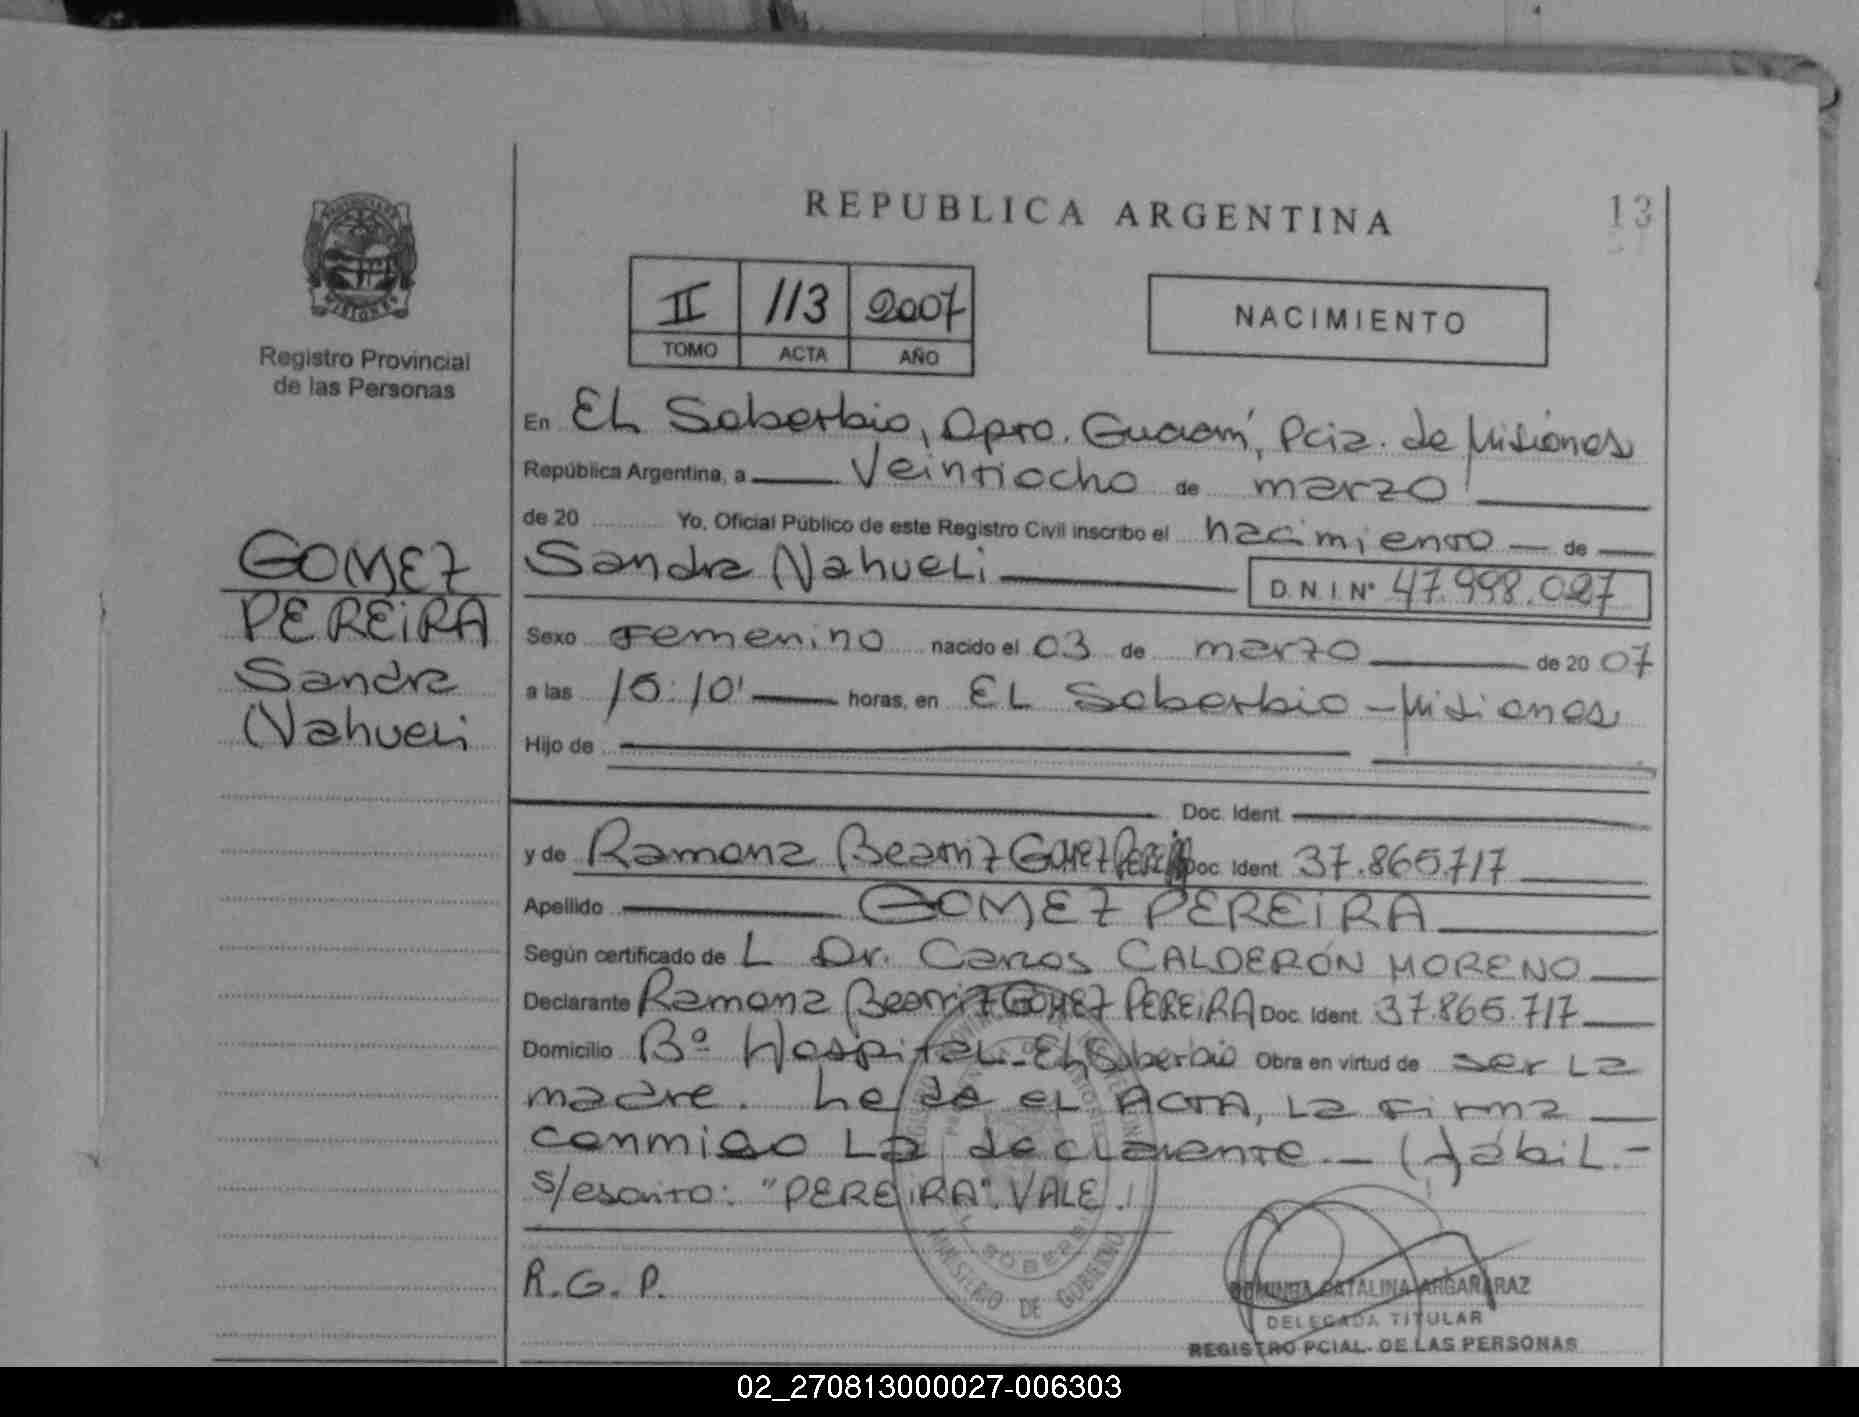 REPUBLICA ARGENTINA
13
II 113 2007
TOMO ACTA AÑO
NACIMIENTO
Registro Provincial
de las Personas
GOMEZ
PEREIRA
Sandra
Nahueli
En El Soberbio, Dpto. Guaraní, Pcia. de Misiones
República Argentina, a Veintiocho de marzo
de 20 Yo, Oficial Público de este Registro Civil inscribo el nacimiento de
Sandra Nahueli D.N.I. Nº 47.998.027
Sexo Femenino nacido el 03 de marzo de 20 07
a las 15:10' horas, en El Soberbio - Misiones
Hijo de
Doc. Ident.
y de Ramona Beatriz GOMEZ PEREIRA Doc. Ident. 37.865.717
Apellido GOMEZ PEREIRA
Según certificado de L Dr. Carlos CALDERÓN MORENO
Declarante Ramona Beatriz GOMEZ PEREIRA Doc. Ident. 37.865.717
Domicilio Bº Hospital - El Soberbio Obra en virtud de ser la
madre. Leída el ACTA, la firma
conmigo la declarante. - Hábil. -
s/escrito: "PEREIRA". VALE.
R.G.P.
MINISTERIO DE GOBIERNO
CATALINA ARGAÑARAZ
DELEGADA TITULAR
REGISTRO PCIAL. DE LAS PERSONAS
02_270813000027-006303